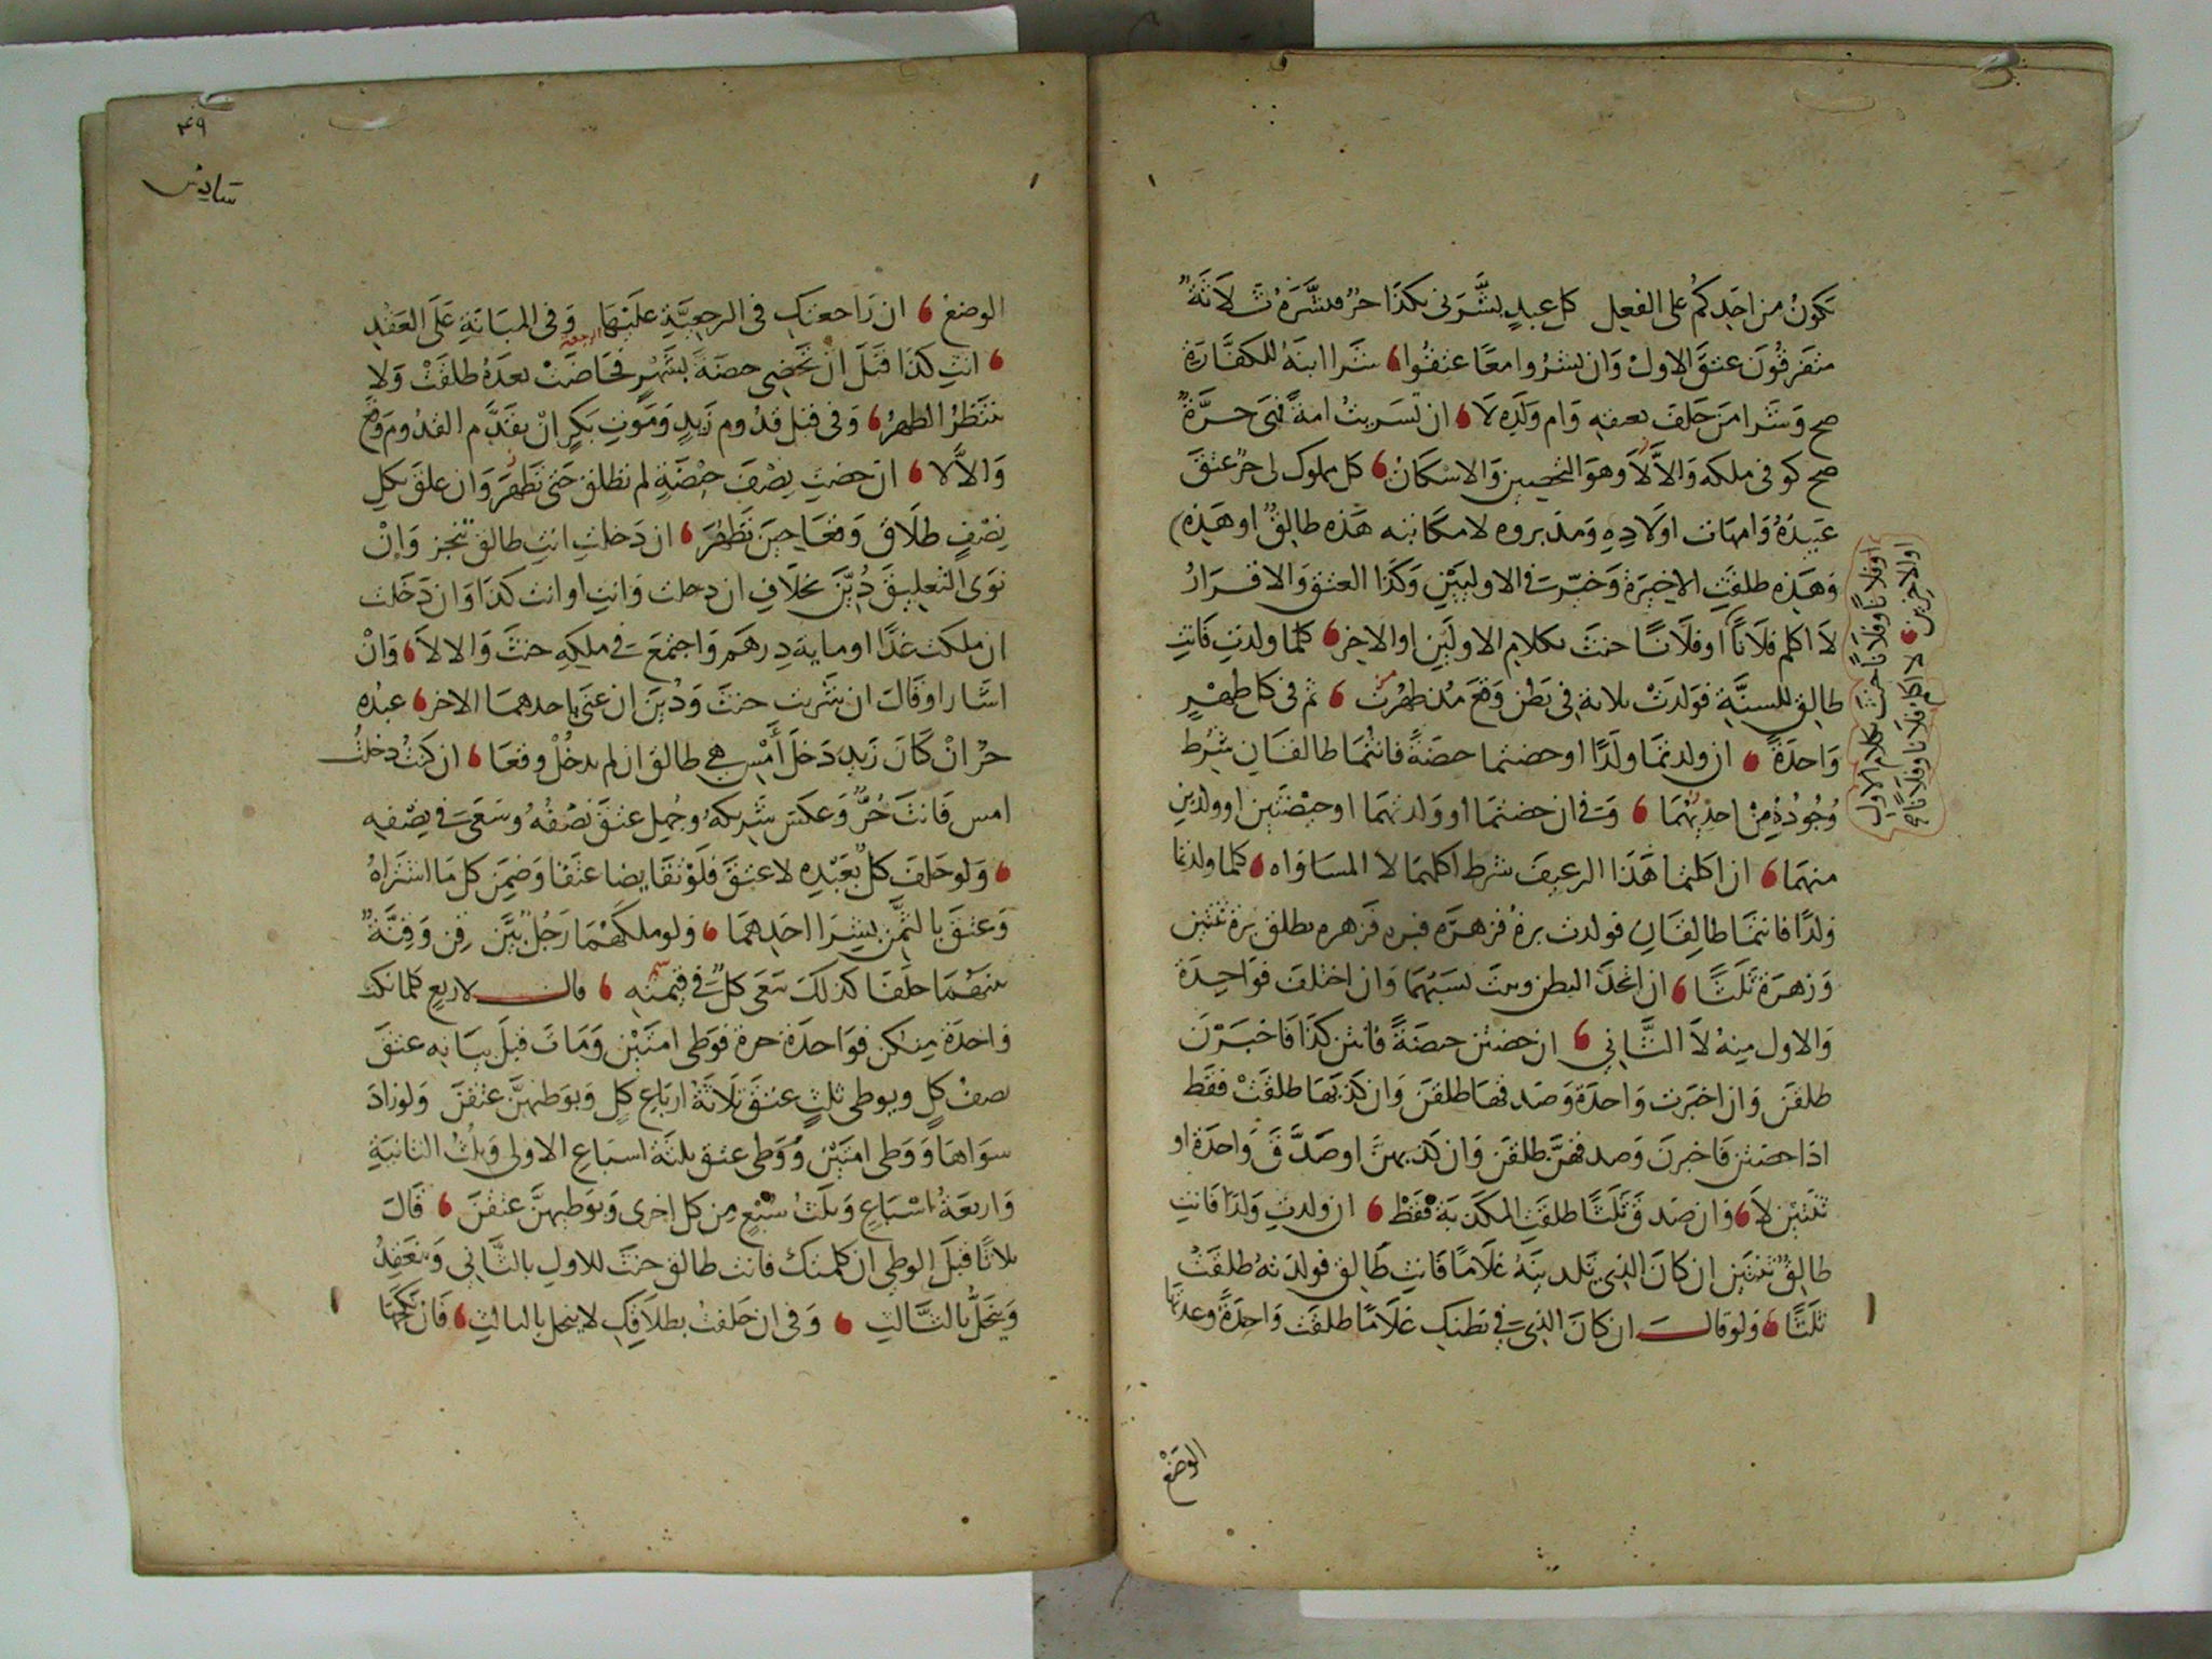 تكون من احدكم على الفعل كل عبد بشرني بكذا حر فبشره ثلاثة
متفرقون عتق الاول وان بشروا معا عتقوا شرا ابنه للكفارة
صح وشرا من حلف بعتقه وام ولده لا ان تسريت امة فهي حرة
صح لو في ملكه والا لا وهو التحصين والاسكان كل مملوك لي حر عتق
عبيده وامهات اولاده ومدبروه لا مكاتبه هذه طالق او هذه
وهذه طلقت الاخيرة وخيرت في الاوليين وكذا العتق والاقرار
لا اكلم فلانا او فلانا حنث بكلام الاولين او الاخر كلما ولدت فانت
طالق للسنة فولدت ثلاثة في بطن وقع مذ طهرت ثم في كل طهر
واحدة ان ولدتما ولدا او حضتما حيضة فانتما طالقان شرط
وجوده من احديهما وفي ان حضتما او ولدتما او حيضتين او ولدين
منهما ان اكلتما هذا الرغيف شرط اكلهما لا المساواه كلما ولدتما
ولدا فانتما طالقان فولدت برة فزهرة فبره فزهره تطلق برة ثنتين
وزهرة ثلثا ان اتحد البطن وثبت نسبهما وان اختلف فواحدة
والاول منه لا الثاني ان حضتن حيضة فانتن كذا فاخبرن
طلقن وان اخبرت واحدة وصدقها طلقن وان كذبها طلقت فقط
اذا حضتن فاخبرن وصدقهن طلقن وان كذبهن او صدق واحدة او
ثنتين لا وان صدق ثلثا طلقت المكذبة فقط ان ولدت ولدا فانت
طالق ثنتين ان كان الذي تلدينه غلاما فانت طالق فولدته طلقت
ثلثا ولو قال ان كان الذي في بطنك غلاما طلقت واحدة وعدتها
او فلانا وفلانا حنث بكلام الاول
او الاخرين لا اكلم فلانا وفلانا
الوضع
٤٩
سادس
الوضع ان راجعتك في الرجعية عليها وفي المبانة على العقد
الرجعة
انت كذا قبل ان تحضي حيضة بشهر فحاضت بعده طلقت ولا
تنتظر الطهر وفي قبل قدوم زيد وموت بكر ان تقدم القدوم وقع
والا لا ان حضت نصف حيضة لم تطلق حتى تطهر وان علق بكل
نصف طلاق وقعا حين تطهر ان دخلت انت طالق تنجز وان
نوى التعليق دين بخلاف ان دخلت وانت او انت كذا وان دخلت
ان ملكت غدا او ماية درهم واجتمع في ملكه حنث والا لا وان
اشار او قال ان شريت حنث ودين ان عنى باحدهما الاخر عبده
حر ان كان زيد دخل أمس هي طالق ان لم يدخل وقعا ان كنت دخلت
امس فانت حر وعكس شريكه وجهل عتق نصفه وسعى في نصفه
ولو حلف كل بعبده لا عتق فلو تقايضا عتقا وضمن كل ما اشتراه
وعتق بالثمن بشرا احدهما ولو ملكهما رجل بين قن وقنة
منهما حلفا كذلك سعى كل في قيمته قال لاربع كلما نكحت
واحدة منكن فواحدة حرة فوطى امتين ومات قبل بيانه عتق
نصف كل وبوطى ثلث عتق ثلاثة ارباع كل وبوطيهن عتقن ولو زاد
سواها ووطى امتين ووطى عتق ثلثة اسباع الاولى وثلث الثانية
واربعة اسباع وثلث سبع من كل اخرى وبوطيهن عتقن قال
ثلاثا قبل الوطي ان كلمتك فانت طالق حنث للاول بالثاني وينعقد
وينحل بالثالث وفي ان حلفت بطلاقك لا ينحل بالثالث فان نكحها